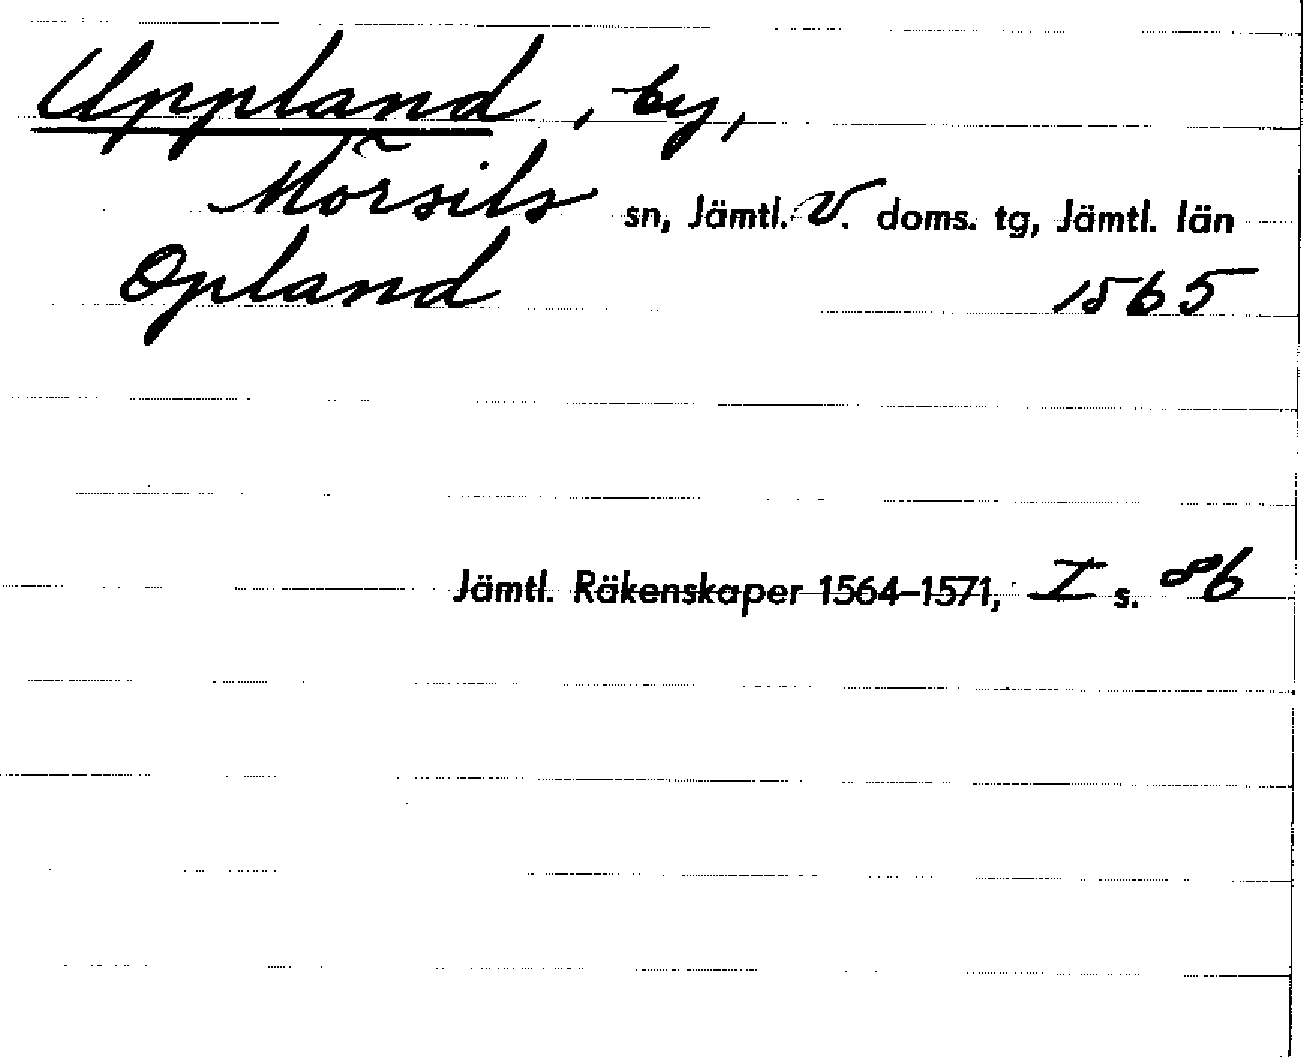 Uppland, by,
Mörsils sn, Jämtl. V. doms. tg, Jämtl. län
Opland 1565
Jämtl. Räkenskaper 1564–1571, I s. 86